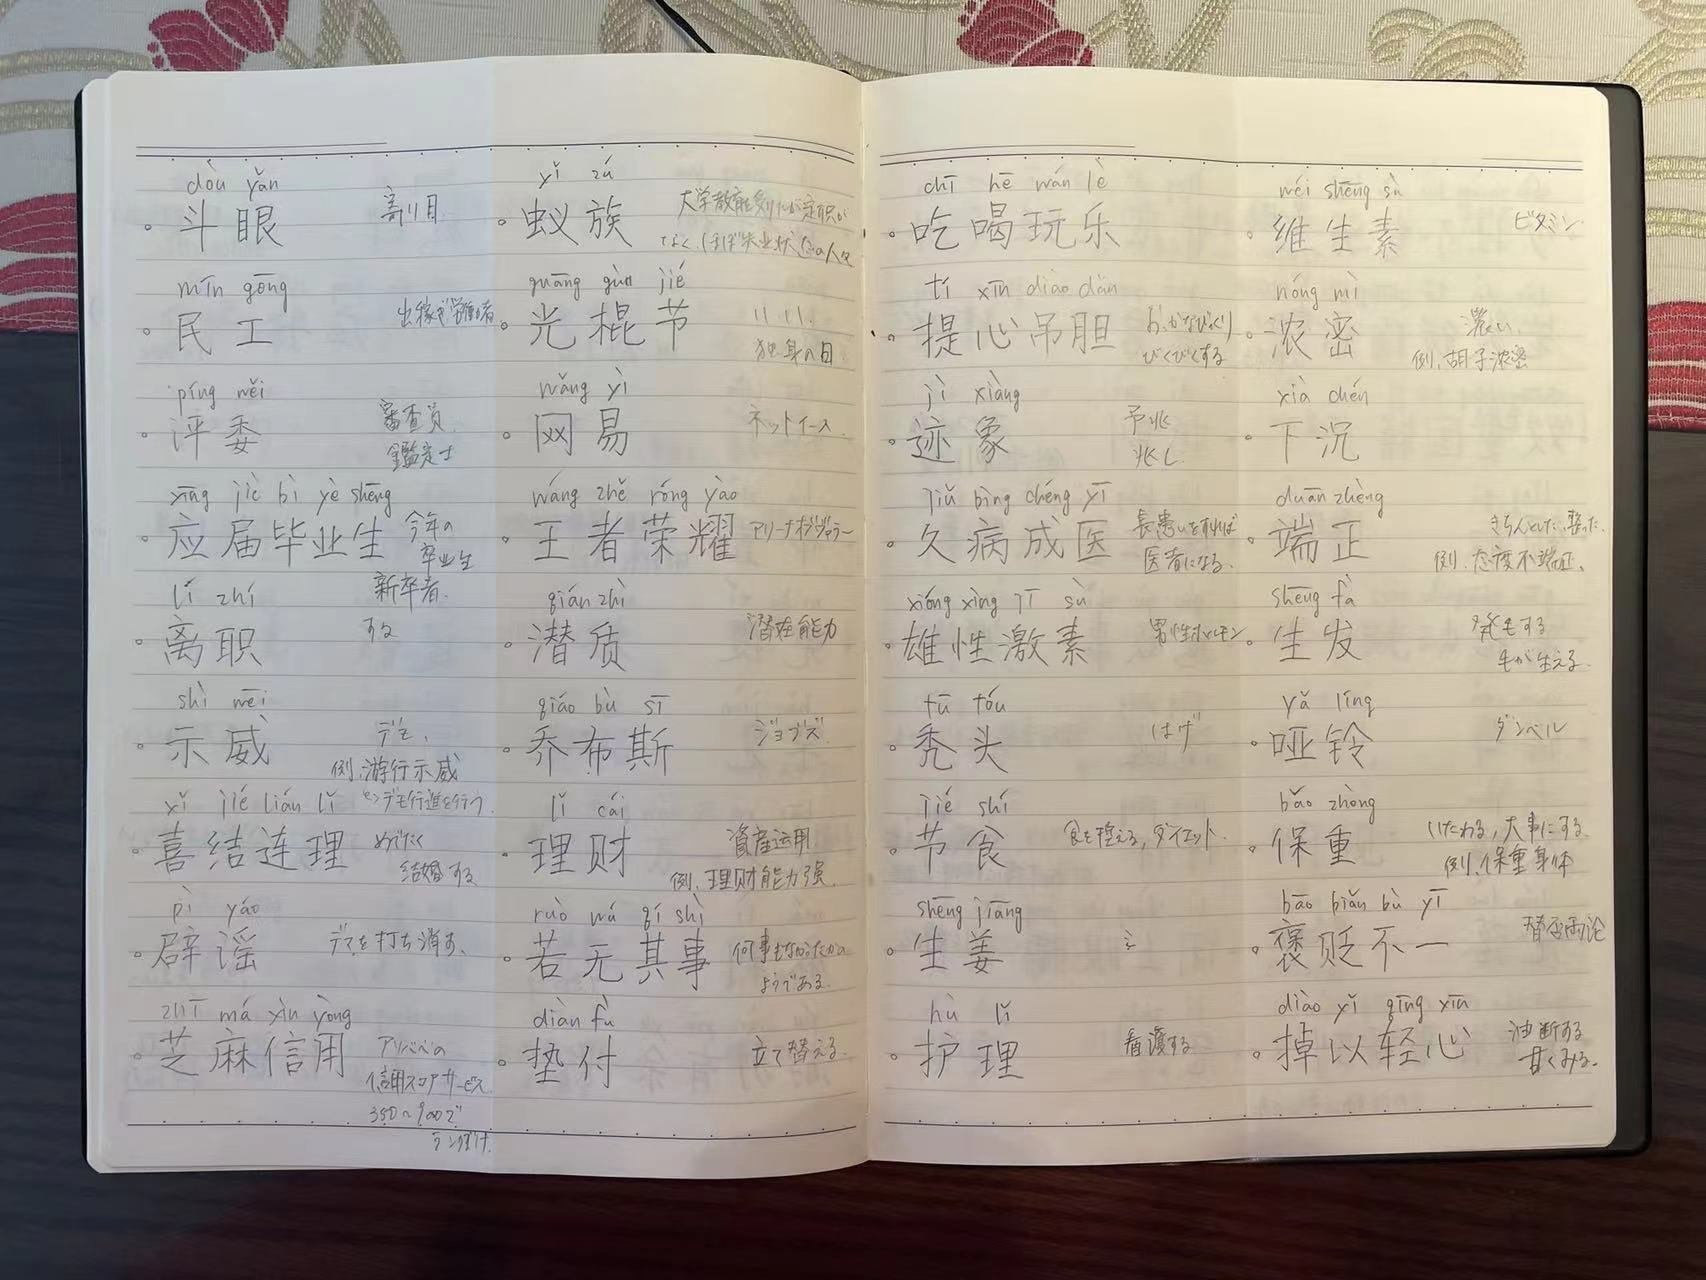 dòu yǎn
斗眼 寄り目
mín gōng
民工 出稼ぎ労働者
píng wěi
评委 審査員
鑑定士
yīng jiè bì yè shēng
应届毕业生 今年の
卒業生
新卒者
lí zhí
离职 する
shì wēi
示威 デモ、
例、游行示威
=>デモ行進を行う
xǐ jié lián lǐ
喜结连理 めでたく
結婚する
pì yáo
辟谣 デマを打ち消す、
zhī má xìn yòng
芝麻信用 アリババの
信用スコアサービス
350~900で
ランク付け
yǐ zú
蚁族 大学教育を受けたが定職が
なく、ほぼ失业状态の人々
guāng gùn jié
光棍节 11.11.
独身の日
wǎng yì
网易 ネットイース
wáng zhě róng yào
王者荣耀 アリーナオブヴァラー
qián zhì
潜质 潜在能力
qiáo bù sī
乔布斯 ジョブズ
lǐ cái
理财 資産运用
例、理财能力强、
ruò wú qí shì
若无其事 何事もなかったかの
ようである
diàn fù
垫付 立て替える
chī hē wán lè
吃喝玩乐
tí xīn diào dǎn
提心吊胆 おっかなびっくり
びくびくする
jì xiàng
迹象 予兆
兆し
jiǔ bìng chéng yī
久病成医 長患いをすれば
医者になる
xióng xìng jī sù
雄性激素 男性ホルモン
tū tóu
秃头 はげ
jié shí
节食 食を控える,ダイエット
shēng jiāng
生姜
hù lǐ
护理 看護する
wéi shēng sù
维生素 ビタミン
nóng mì
浓密 濃い、
例、胡子浓密
xià chén
下沉
duān zhèng
端正 きちんとした、整った
例、态度不端正、
shēng fà
生发 発毛する
毛が生える
yǎ líng
哑铃 ダンベル
bǎo zhòng
保重 いたわる,大事にする
例、保重身体
bāo biǎn bù yī
褒贬不一 賛否両论
diào yǐ qīng xīn
掉以轻心 油断する
甘くみる